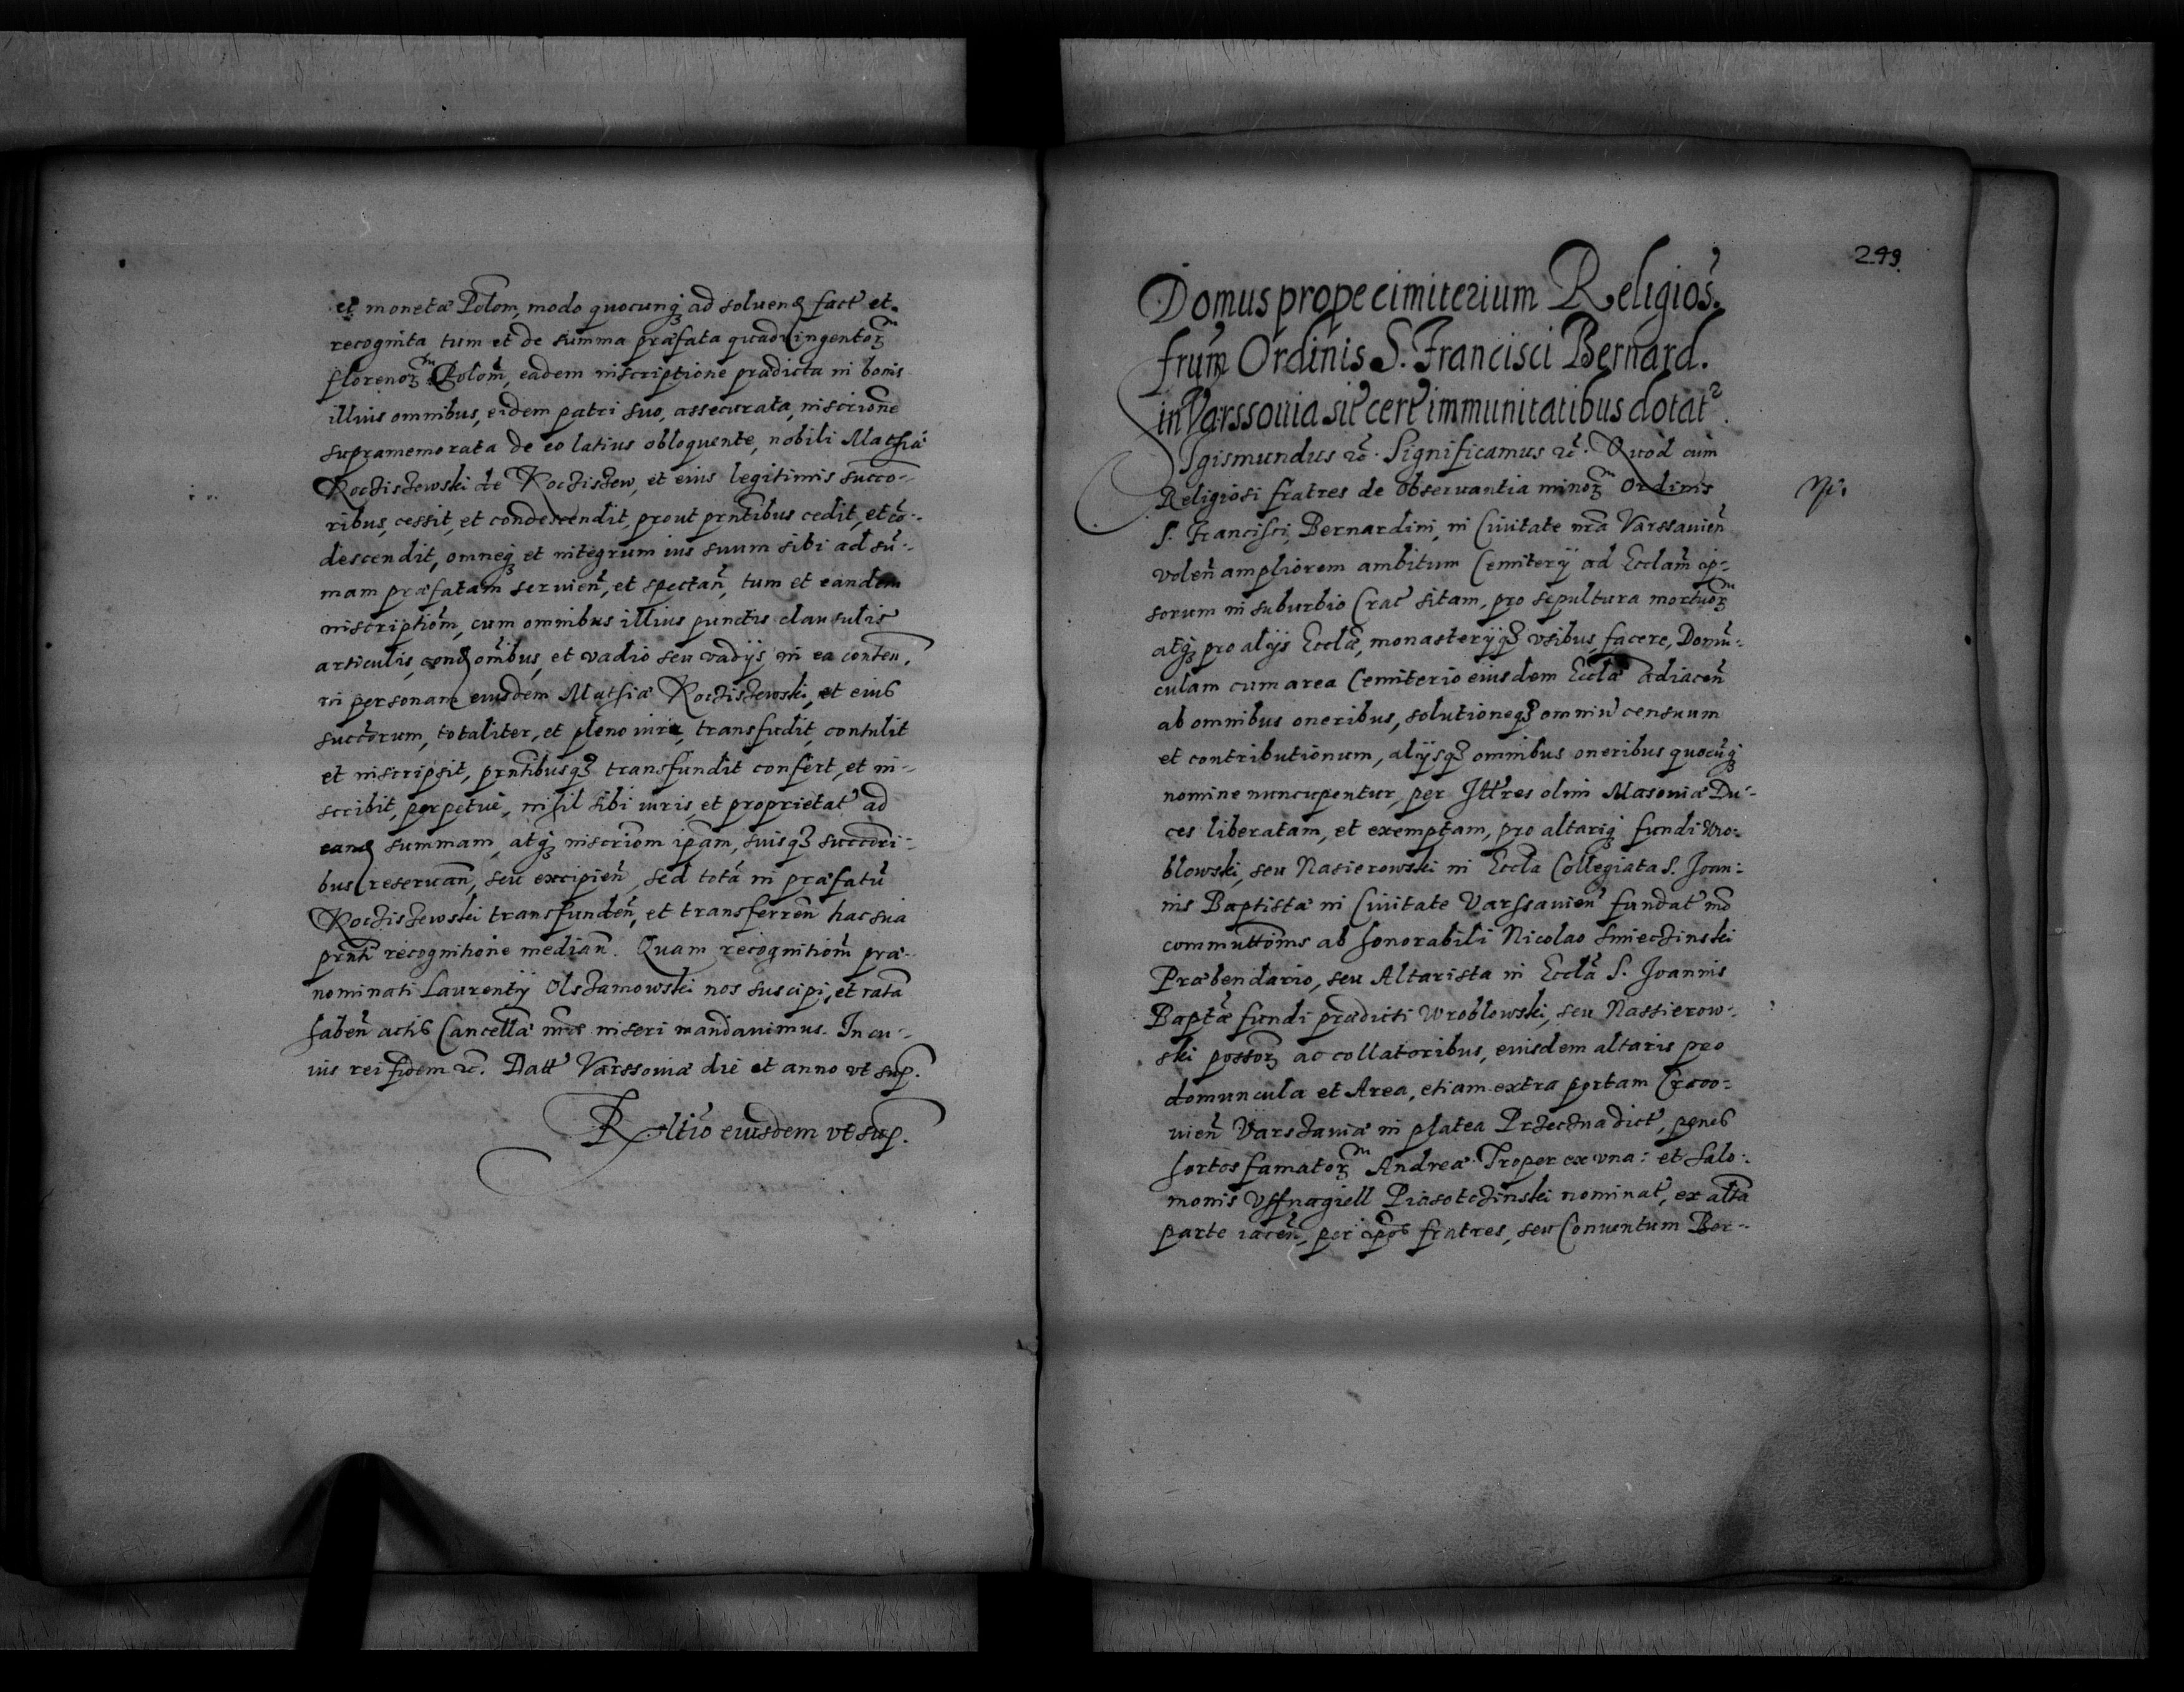 et monetæ Polon, modo quocunq₃ ad soluend fact et
recognita tum et de summa præfata quadringentorum
florenorum Polom̃, eadem inscriptione prædicta in bonis
illius omnibus, eidem patri suo, assecurata, inscrione
supramemorata de eo latius obloquente, nobili Mathiæ
Rocziszewski de Rocziszew, et eius legitimis succo-
ribus, cessit, et condescendit, prout prntibus cedit, et co-
descendit, omneq₃ et integrum ius suum sibi ad sũ-
mam præfatam seruień, et spectań, tum et eandem
inscriptiom̃, cum omnibus illius punctis clausulis
articulis, cond omibus, et vadio seu vadijs, in ea conten,
in personam eiusdem Mathiæ Rocziszewski, et eius
succorum, totaliter, et pleno iure, transfudit, contulit
et inscripsit, prntibusq₃ transfundit confert, et in-
scribit, perpetue, nihil sibi iuris, et proprietat ad
eand summam, atq₃ inscriom ipam, suisq₃ succori-
bus reseruañ, seu excipień, sed totã in præfatũ
Roczisžewski transfundeń, et transferreń hac sua
prnti recognitione mediañ. Quam recognitiom̃ præ-
nominati Laurentij Olszamowski nos suscipi, et rata
habeñ actis Cancellæ nræ inseri mandauimus. In cu-
ius rei fidem &c. Datt Varssouiæ die et anno vt sup.
Reltio eiusdem vt sup.
249.
Domus prope cimiterium Religios.
frum Ordinis S. Francisci Bernard.
in Varssouia sit cert immunitatibus dotat
Sigismundus &c. Significamus &c. Quod cum
Religiosi fratres de obseruantia minorum Ordinis
S. Francisci, Bernardini, in Ciuitate nra Varssauień
voleń ampliorem ambitum Cemiterij ad Ecclam ip-
sorum in suburbio Crac sitam, pro sepultura mortuorum
atq₃ pro alijs Ecclæ, monasterijq₃ vsibus, facere, Domũ-
culam cum area Cemiterio eiusdem Ecclæ adiaceñ
ab omnibus oneribus, solutioneq₃ omniũ censuum
et contributionum, alijsq₃ omnibus oneribus quocũq₃
nomine nuncupentur, per Illres olim Masouiæ Du-
ces liberatam, et exemptam, pro altariq₃ fundi Wro-
blowski, seu Nasierowski in Eccla Collegiata S. Joan-
nis Baptistæ in Ciuitate Varssauień fundat mõ
commuttoms ab honorabili Nicolao Smieczinski
Præbendario, seu Altarista in Eccla S. Joannis
Baptæ fundi prædicti Wroblowski, seu Nassierow-
ski possor₃ ac collatoribus, eiusdem altaris pro
domuncula et Area, etiam extra portam Craco-
uień Varszauiæ in platea Przeczna dict, penes
hortos famatorum Andreæ Troper ex vna: et Salo-
monis Vffnagiell Piasotczinski nominat, ex alta
parte iaceñ, per ipos fratres, seu Conuentum Ber-